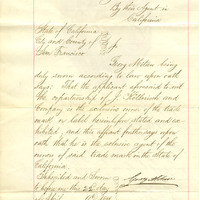 By this Agent in
California
State of California
City and County of } ss.
San Francisco
being
duly sworn according to law upon oath
says: That the applicant
The copartnership of J.
Company is the exclusive owner of the trade
mark or label hereinbefore stated and ex-
hibited, and this affiant further says upon
oath that he is the exclusive agent of the
owner of said trade mark in the State of
California.
Subscribed and Sworn
to before me this 22d day